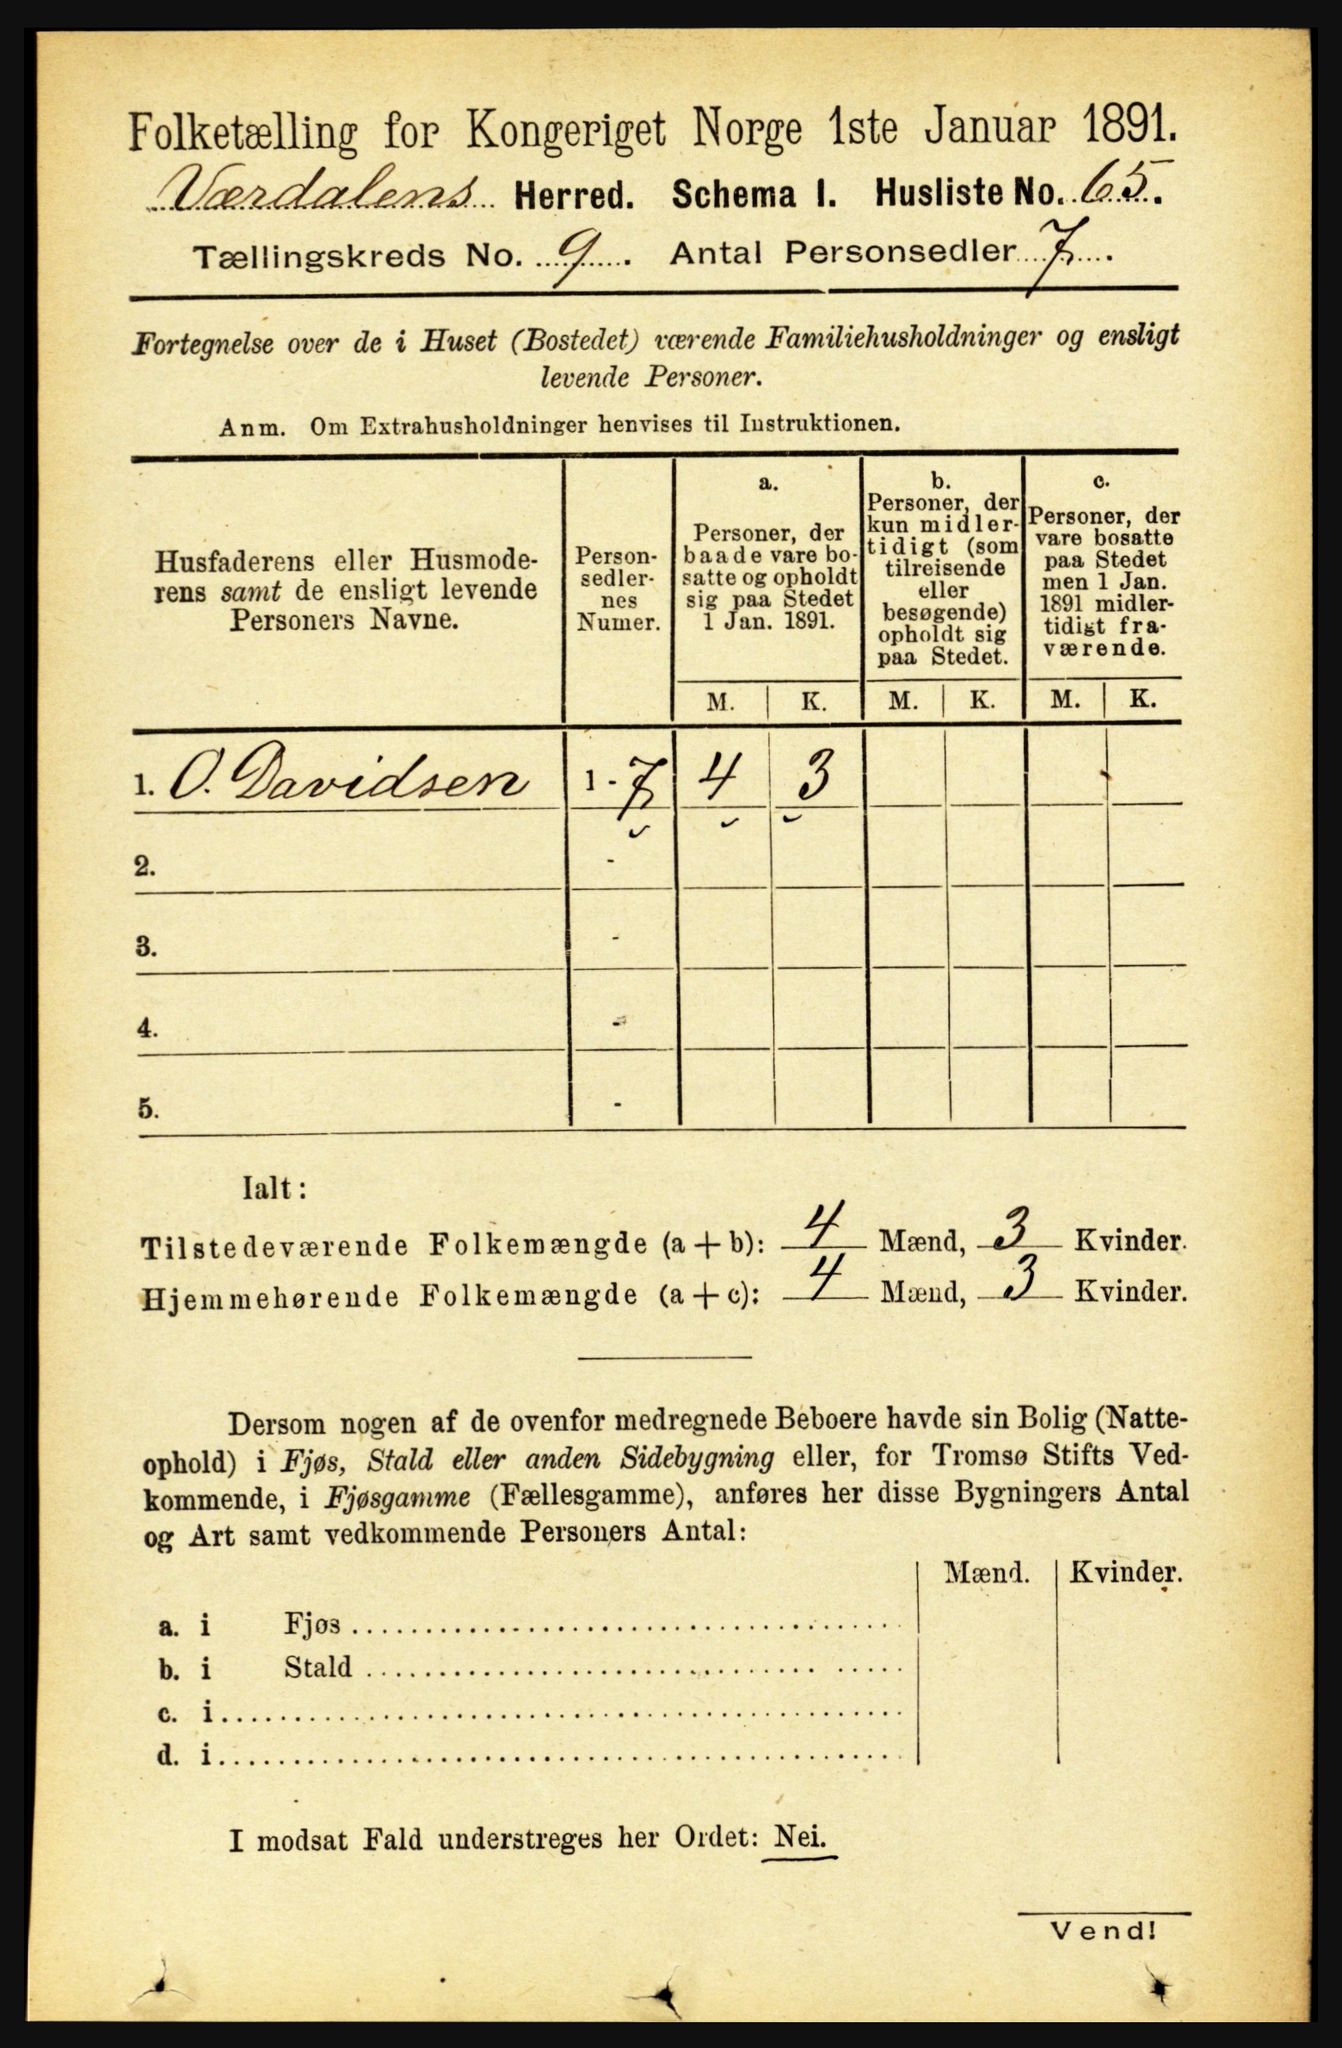 Folketælling for Kongeriget Norge 1ste Januar 1891.
Værdalens Herred. Schema I. Husliste No. 65.
Tællingskreds No. 9. Antal Personsedler 7.
Fortegnelse over de i Huset (Bostedet) værende Familiehusholdninger og ensligt
levende Personer.
Anm. Om Extrahusholdninger henvises til Instruktionen.
Husfaderens eller Husmode-
rens samt de ensligt levende
Personers Navne.
Person-
sedler-
nes
Numer.
a.
Personer, der
baade vare bo-
satte og opholdt
sig paa Stedet
1 Jan. 1891.
b.
Personer, der
kun midler-
tidigt (som
tilreisende
eller
besøgende)
opholdt sig
paa Stedet.
c.
Personer, der
vare bosatte
paa Stedet
men 1 Jan.
1891 midler-
tidigt fra-
værende.
M. K. M. K. M. K.
1. O. Davidsen 1 - 7 4 3
2. -
3. -
4. -
5. -
Ialt:
Tilstedeværende Folkemængde (a + b): 4 Mænd, 3 Kvinder.
Hjemmehørende Folkemængde (a + c): 4 Mænd, 3 Kvinder.
Dersom nogen af de ovenfor medregnede Beboere havde sin Bolig (Natte-
ophold) i Fjøs, Stald eller anden Sidebygning eller, for Tromsø Stifts Ved-
kommende, i Fjøsgamme (Fællesgamme), anføres her disse Bygningers Antal
og Art samt vedkommende Personers Antal:
Mænd. Kvinder.
a. i Fjøs
b. i Stald
c. i
d. i
I modsat Fald understreges her Ordet: Nei.
Vend!